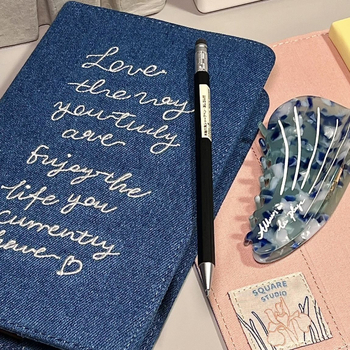 Love
the way
you truly
are
Enjoy the
life you
currently
have
SQUARE
STUDIO